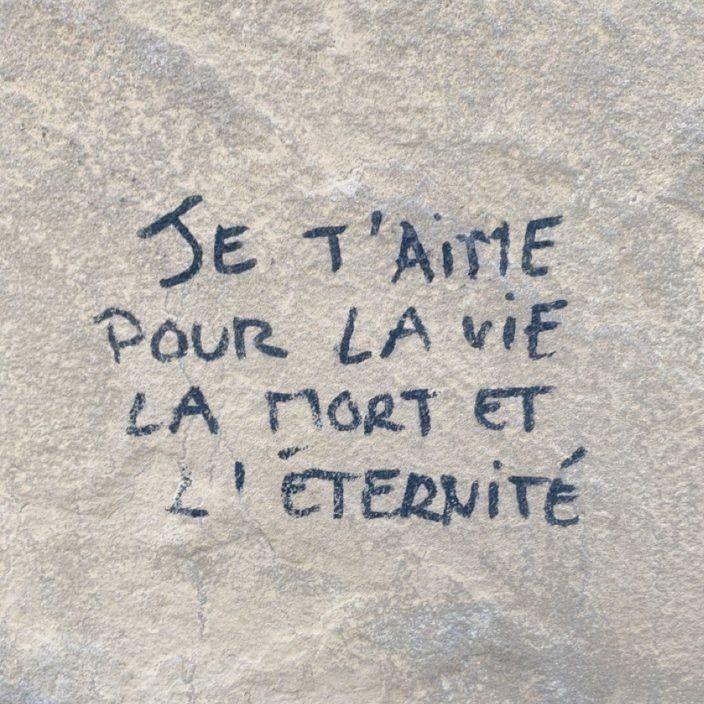 JE T'AiME
POUR LA ViE
LA MORT ET
L'ÉTERNiTÉ